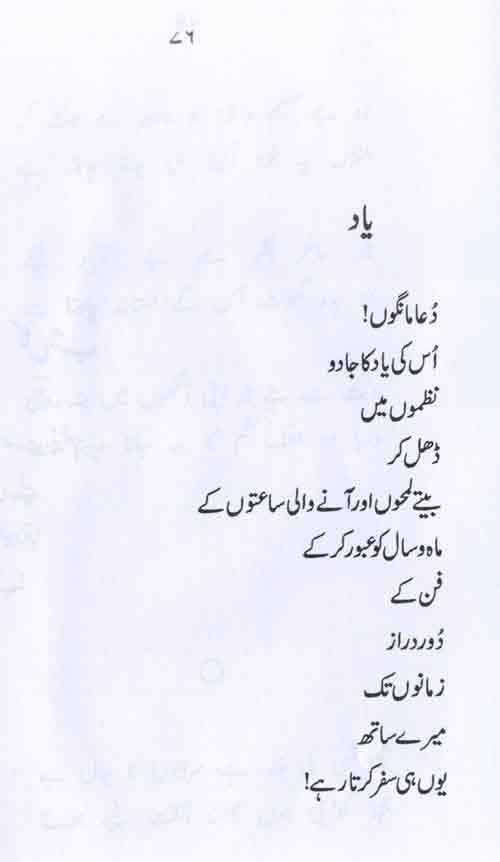 ۷۶
یاد
دُعا مانگوں!
اُس کی یاد کا جادو
نظموں میں
ڈھل کر
بیتے لمحوں اور آنے والی ساعتوں کے
ماہ و سال کو عبور کر کے
فن کے
دُور دراز
زمانوں تک
میرے ساتھ
یوں ہی سفر کرتا رہے!